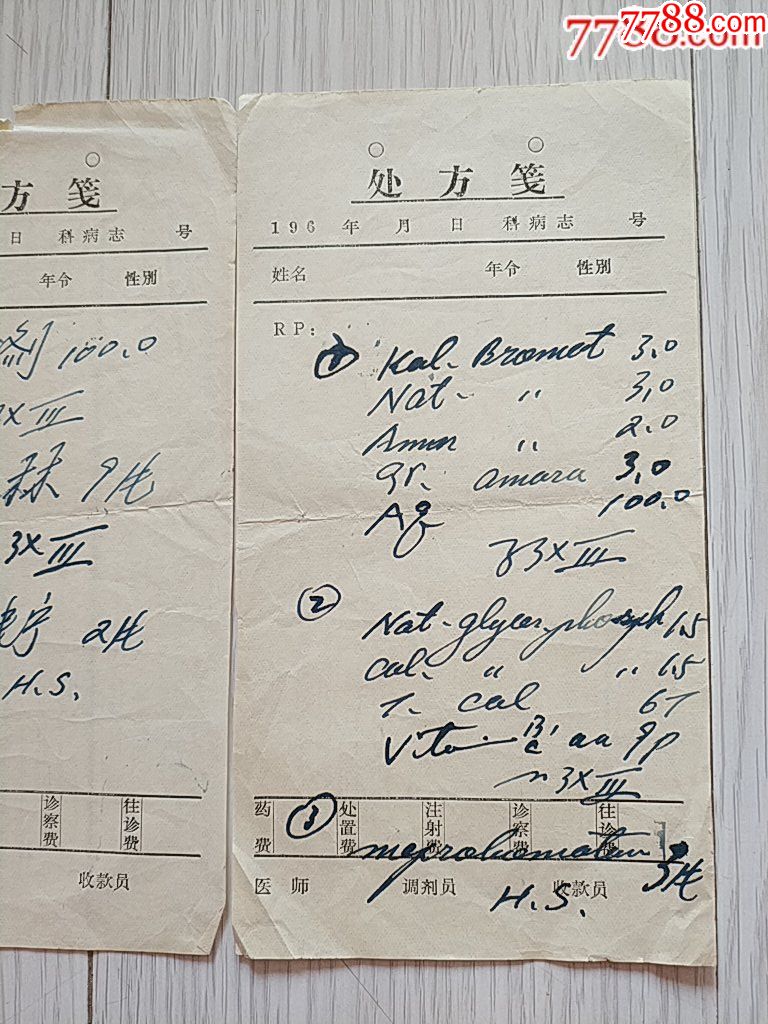 7788.com
7788.com
方 笺
日 科病志 号
年令 性别
剂 100.0
3X III
9片
3X III
2片
H.S.
诊察费 往诊费
收款员
处 方 笺
196 年 月 日 科病志 号
姓名 年令 性别
RP:
① Kal. Bromat 3.0
Nat. 〃 3.0
Amm 〃 2.0
gr. amara 3.0
Ag 100.0
3X III
② Nat-glycerphosph 1.5
Cal. 〃 〃 1.5
T. Cal 6T
Vitamin B1 C aa 9p
3X III
药费 处置费 注射费 诊察费 往诊费
③ meprobamatum 3片
医 师 调剂员 收款员
H.S.